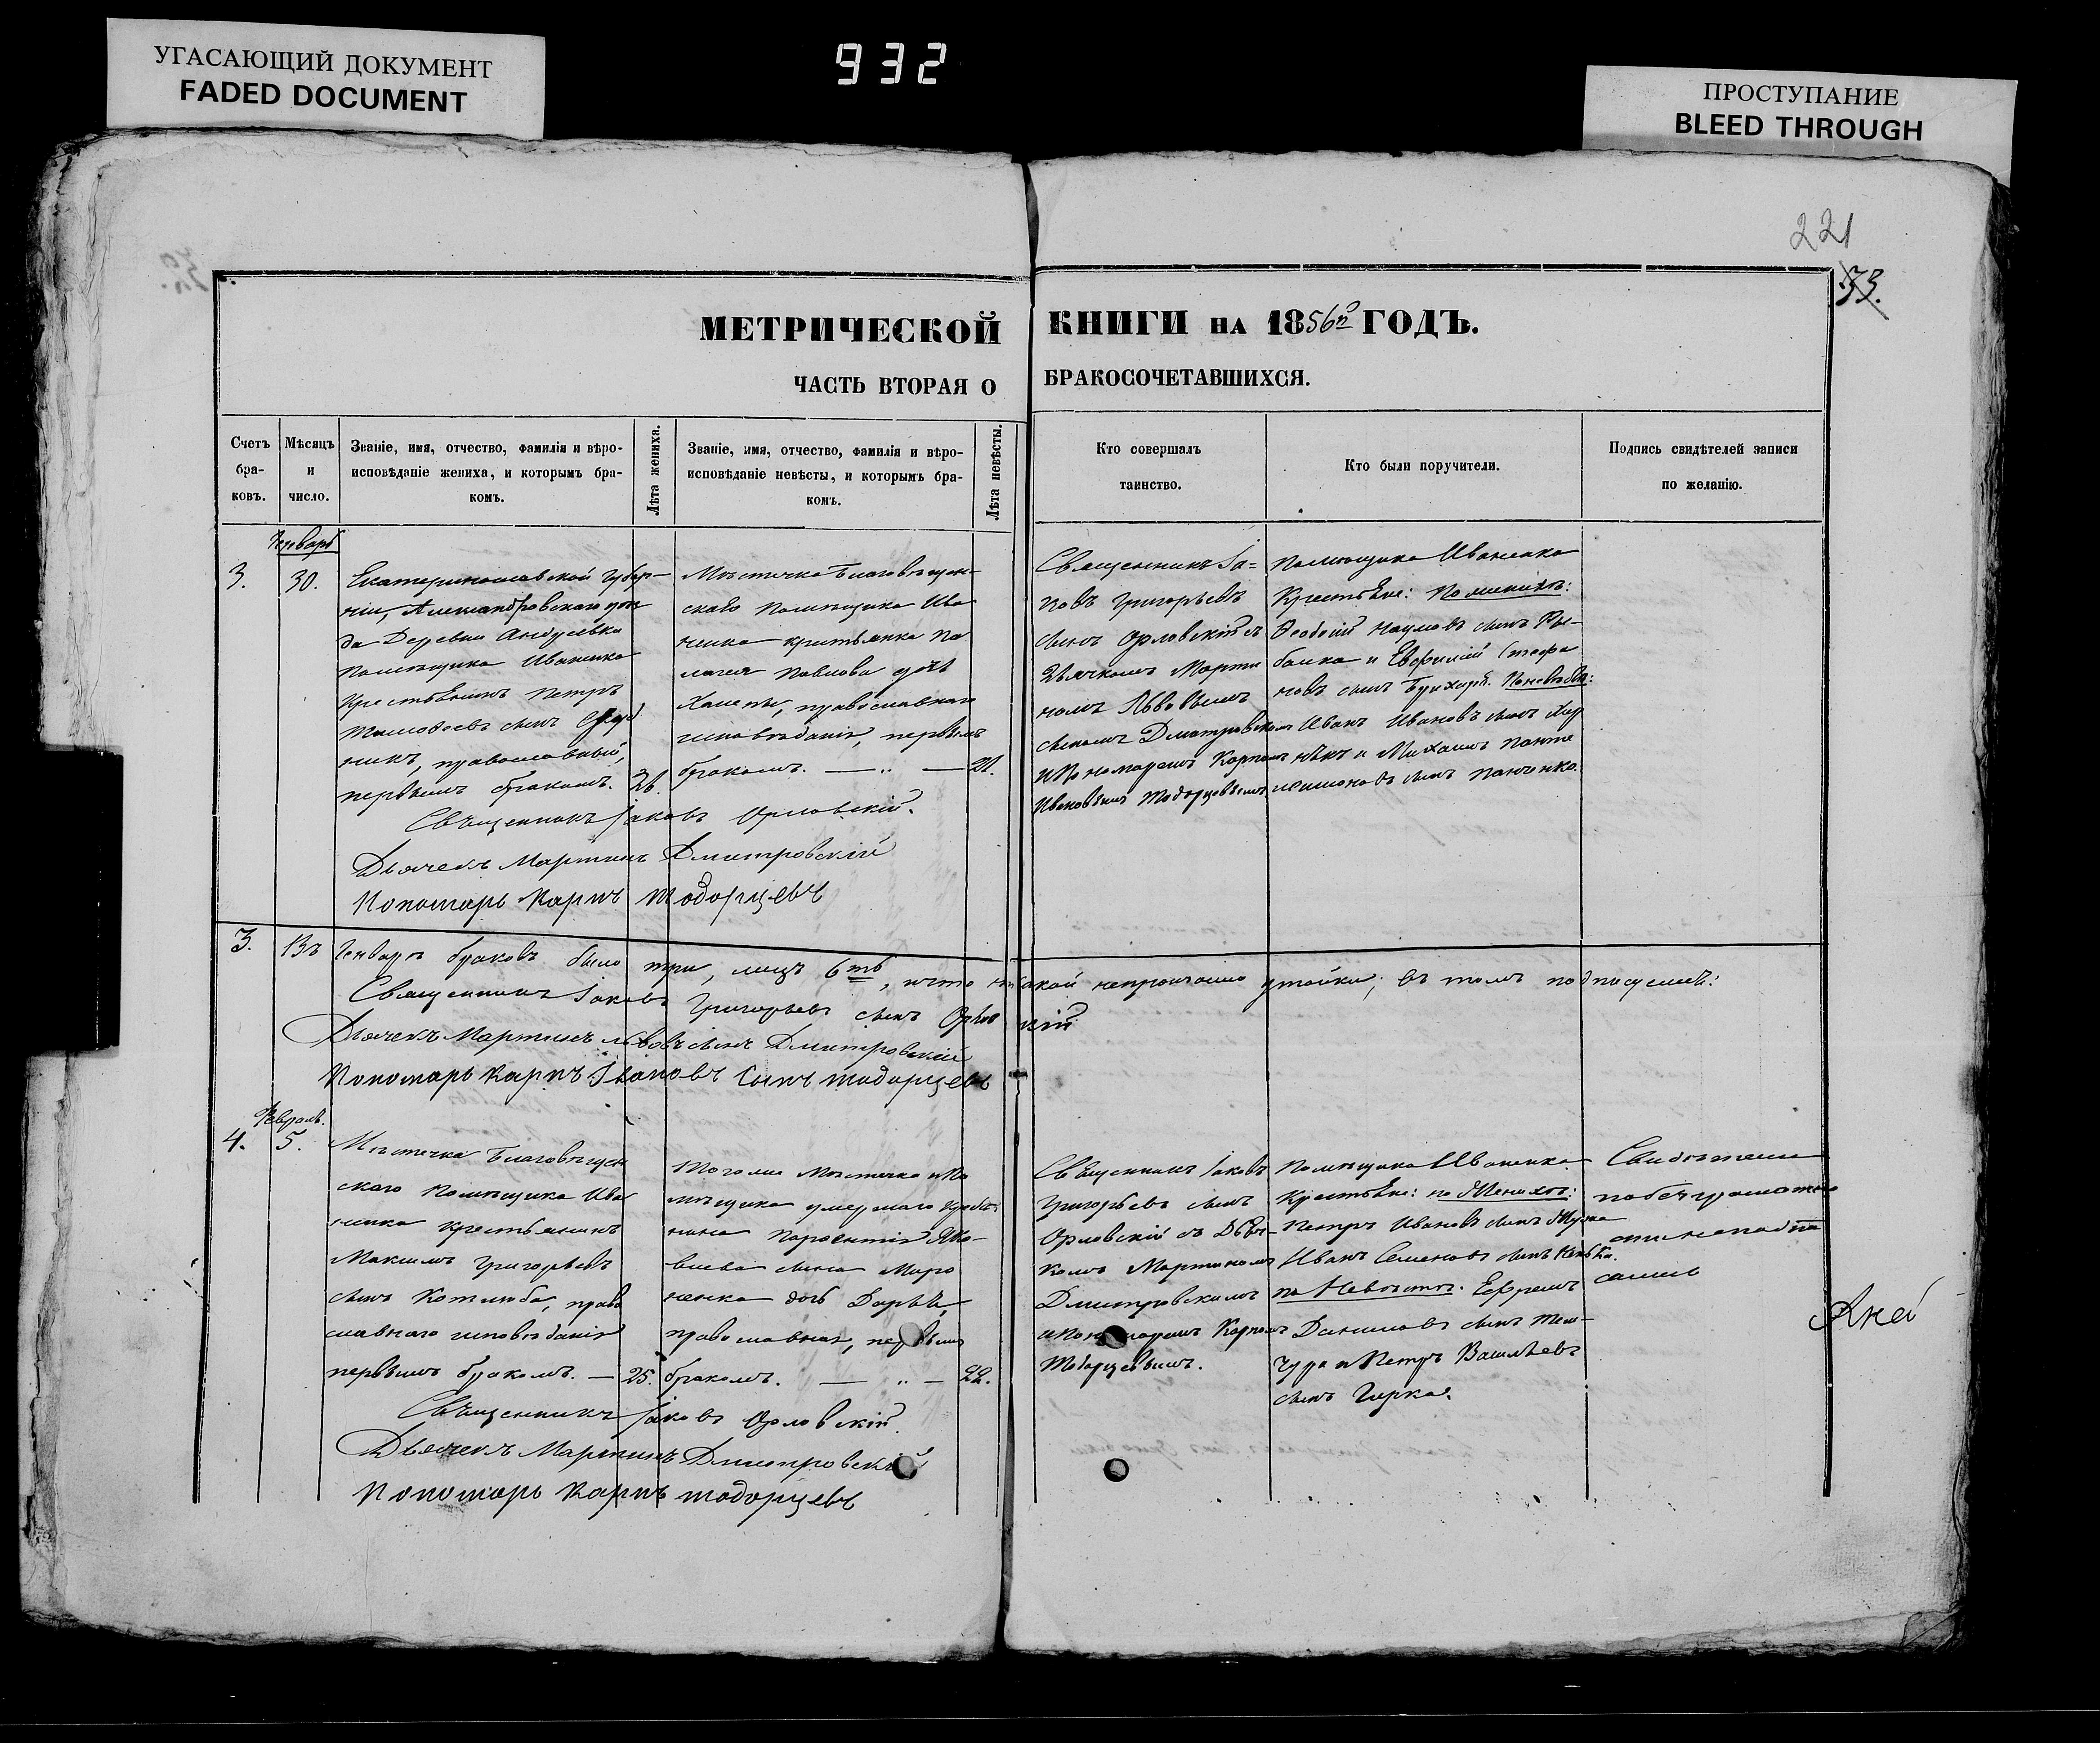 УГАСАЮЩИЙ ДОКУМЕНТ
FADED DOCUMENT
932
ПРОСТУПАНИЕ
BLEED THROUGH
221
33.
МЕТРИЧЕСКОЙ КНИГИ НА 1856й ГОДЪ.
ЧАСТЬ ВТОРАЯ О БРАКОСОЧЕТАВШИХСЯ.
Счетъ
бра-
ковъ.
Мѣсяцъ
и
число.
Званіе, имя, отчество, фамилія и вѣро-
исповѣданіе жениха, и которымъ бра-
комъ.
Лѣта жениха.
Званіе, имя, отчество, фамилія и вѣро-
исповѣданіе невѣсты, и которымъ бра-
комъ.
Лѣта невѣсты.
Кто совершалъ
таинство.
Кто были поручители.
Подпись свидѣтелей записи
по желанію.
Генварь
3.
30.
Екатеринославской Губер-
ніи, Александровскаго уѣз
да Деревни
помѣщика Иваненка
Крестьянинъ Петръ
сынъ
православный,
первымъ бракомъ.
26.
Мѣстечка Благовѣщен-
скаго помѣщика Ива
ненка крестьянка Па
лагея Павлова дочь
православнаго
исповѣданія, первымъ
бракомъ. — „ —
21.
Священникъ Іа=
ковъ Григорьевъ
сынъ Орловскій съ
Дьячкомъ Марти
номъ Львовымъ
сыномъ Дмитровскимъ
и Пономаремъ Карпомъ
Ивановымъ Тодорцовымъ
помѣщика Иваненка
Крестьяне: по женихѣ:
Ѳеодосій Наумовъ сынъ Ры-
балка и Евфимій Стефа
новъ сынъ по невѣстѣ:
Иванъ Ивановъ сынъ
и Михаилъ Панте
леимоновъ сынъ Панченко.
Священникъ Іаковъ Орловскій.
Дьячекъ Мартинъ Дмитровскій
Пономарь Карпъ Тодорцевъ
3.
Въ Генварѣ браковъ было три, лицъ 6ть, и что никакой непрописано утайки; въ томъ подписуемся:
Священникъ Іаковъ Григорьевъ сынъ Орловскій
Дьячекъ Мартинъ Львовъ сынъ Дмитровскій
Пономарь Карпъ Івановъ сынъ тодорцевъ
Февраль.
4.
5.
Мѣстечка Благовѣщен
скаго помѣщика Ива
ненка крестьянинъ
Максимъ Григорьевъ
сынъ Котлюба, право
славнаго исповѣданія
первымъ бракомъ. —
25.
Того же мѣстечка и по
мѣщика умершаго
Яко-
влева сына Миро
ненка дочь Дарья,
православная, первымъ
бракомъ. — „ —
22.
Священникъ Іаковъ
Григорьевъ сынъ
Орловскій съ Дьяч-
комъ Мартиномъ
Дмитровскимъ
и Пономаремъ Карпомъ
Тодорцевымъ.
Помѣщика Иваненка
крестьяне: по Женихѣ:
Петръ Ивановъ сынъ
Иванъ Семеновъ сынъ
по Невѣстѣ. Ефремъ
Даниловъ сынъ
и Петръ Васильевъ
сынъ Гирка.
Свидѣтели
по безграмотно
сти неподпи
сались
Священникъ Іаковъ Орловскій.
Дьячекъ Мартинъ Дмитровскій
Пономарь Карпъ тодорцевъ